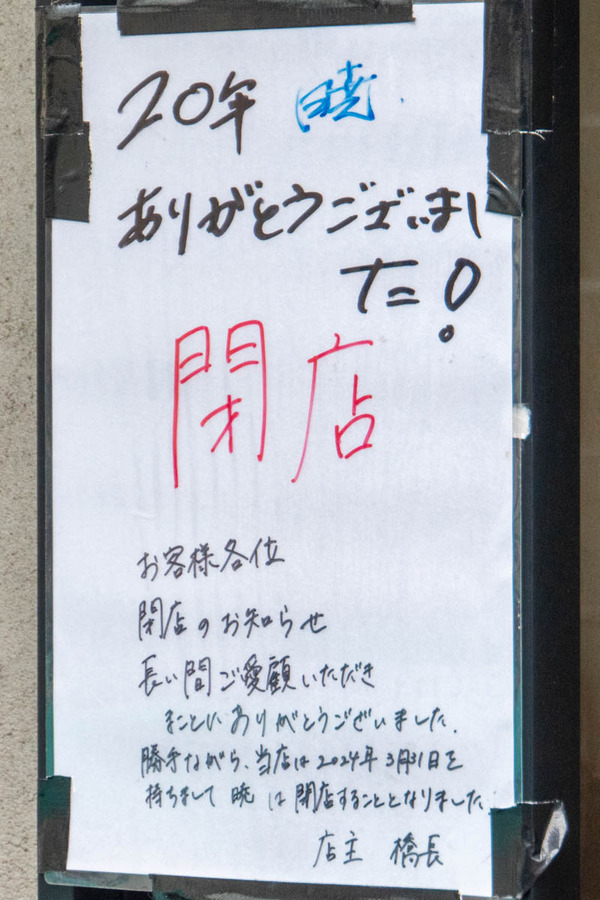 20年 暁
ありがとうございまし
た!
閉店
お客様各位
閉店のお知らせ
長い間ご愛顧いただき
まことにありがとうございました.
勝手ながら、当店は2024年3月31日を
持ちまして 暁 は閉店することとなりました.
店主 橋長